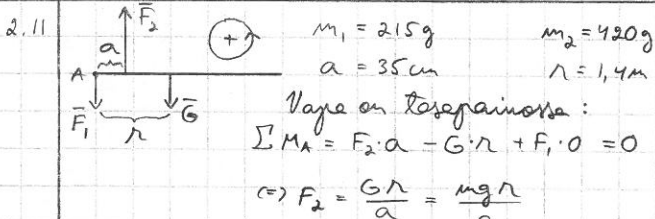 2.11
F̄₂
+
a
A
F̄₁
r
Ḡ
m₁ = 215g m₂ = 420g
a = 35 cm r = 1,4m
Vapa on tasapainossa:
ΣM_A = F₂·a - G·r + F₁·0 = 0
(=) F₂ = Gr/a = mgr/a